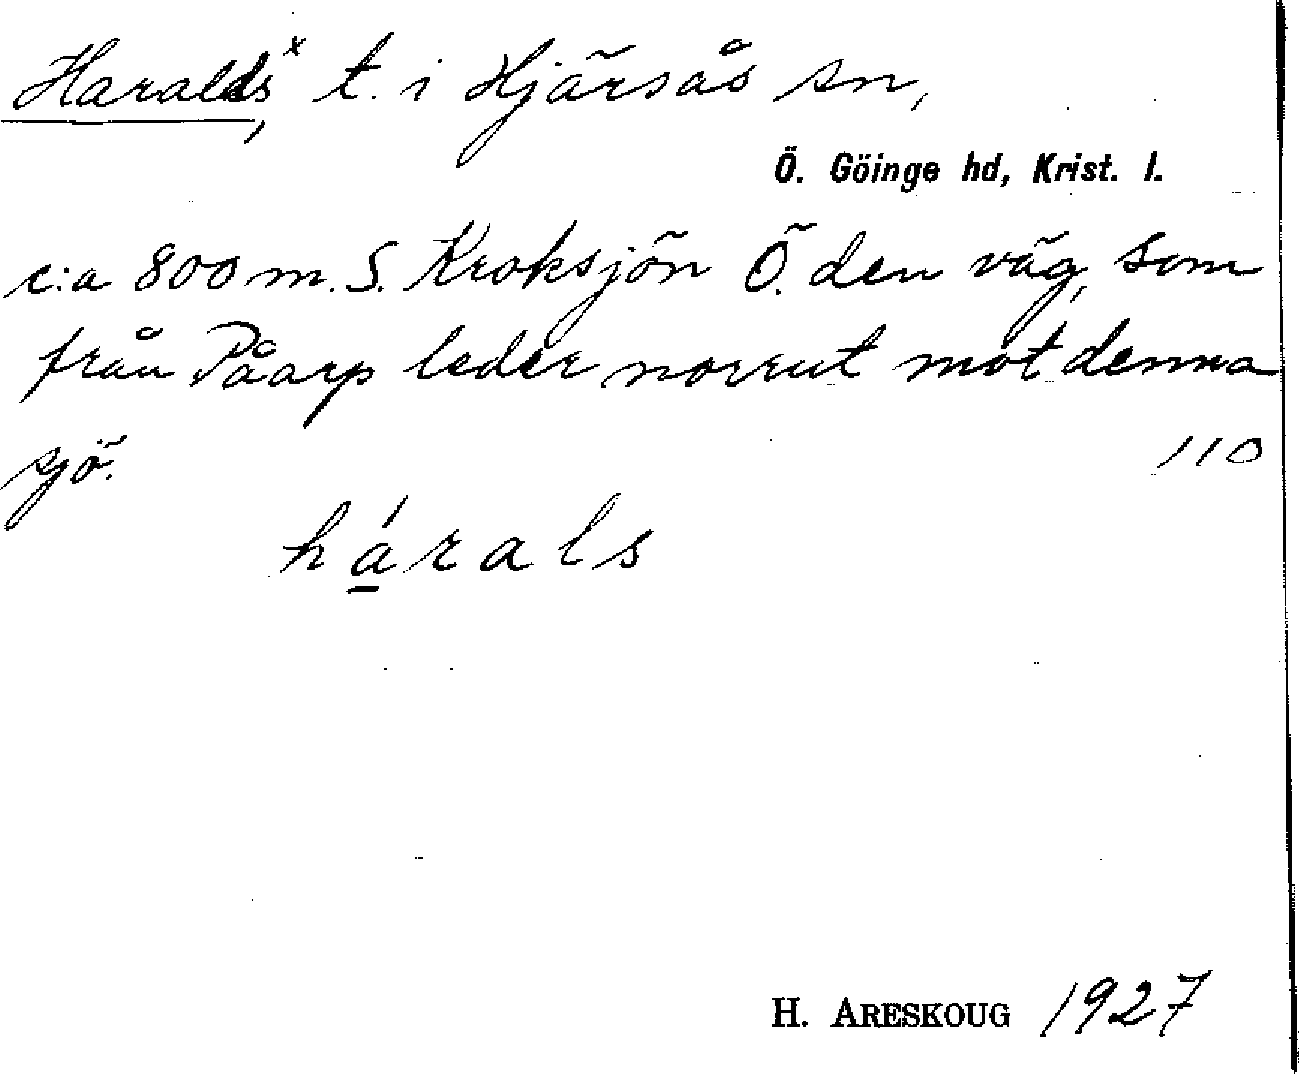 Haralds,ˣ t. i Hjärsås sn,
Ö. Göinge hd, Krist. l.
c:a 800 m. S. Kroksjön Ö. den väg, som
från Påarp leder norrut mot denna
sjö.
110
hárals
H. ARESKOUG 1927